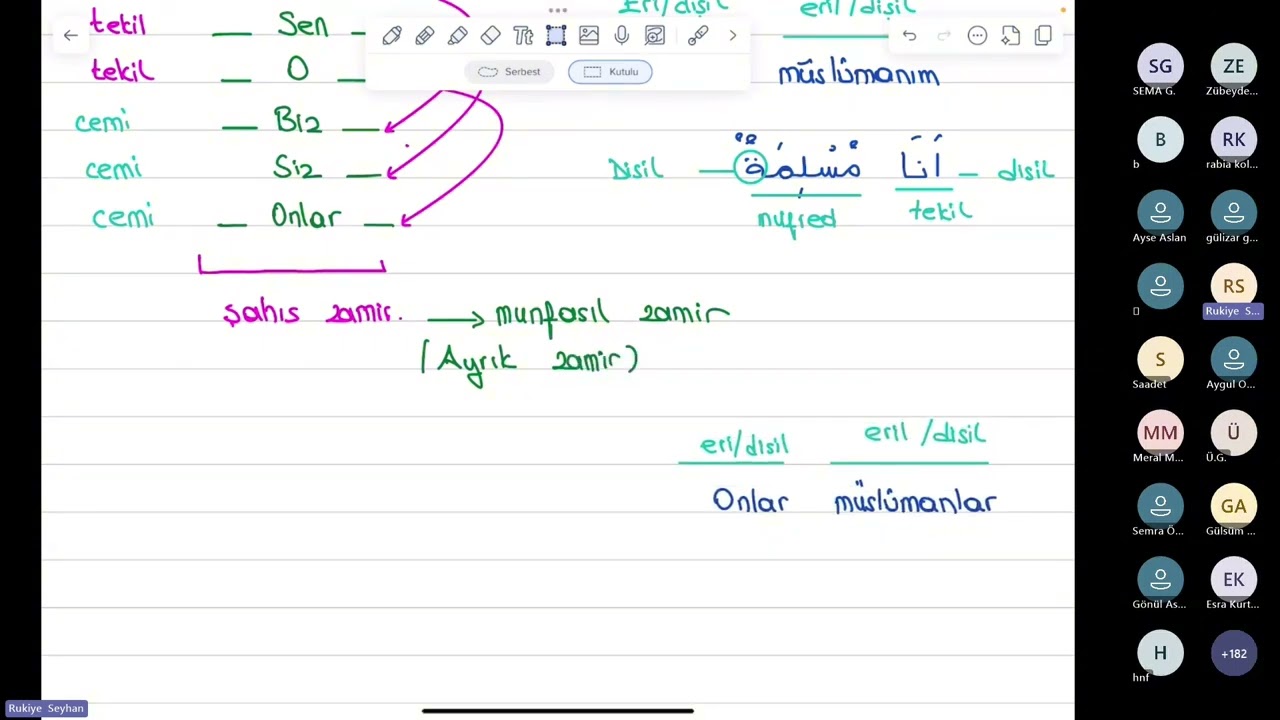 tekil — Sen —
Eril/dişil eril/dişil
Tt
Serbest Kutulu
tekil — O —
müslümanım
cemi — Biz —
cemi Siz —
Disil — مُسْلِمَةٌ اَنَا — disil
müfred tekil
cemi — Onlar —
şahıs zamir. → munfasıl zamir
(Ayrık zamir)
eril/disil eril/disil
Onlar müslümanlar
SG ZE
SEMA G. Zübeyde...
B RK
b rabia kol...
Ayse Aslan gülizar g...
RS
Rukiye S...
S
Saadet Aygul O...
MM Ü
Meral M... Ü.G.
GA
Semra Ö... Gülsüm ...
EK
Gönül As... Esra Kurt...
H +182
hnf
Rukiye Seyhan